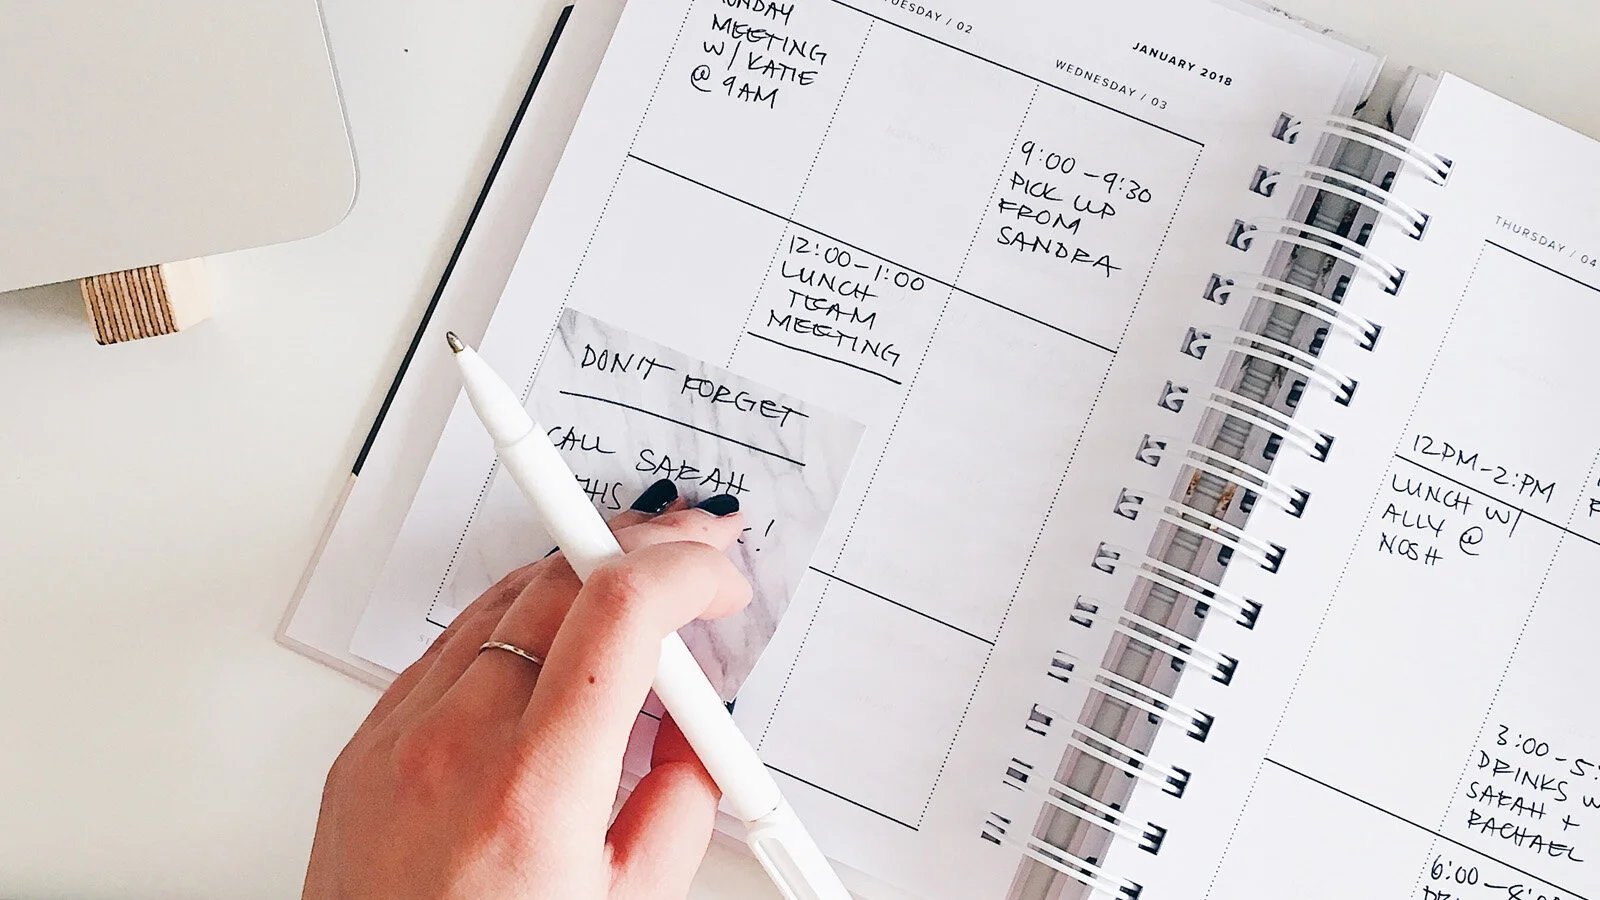 TUESDAY / 02
JANUARY 2018
WEDNESDAY / 03
MEETING
W/ KATIE
@ 9AM
9:00 - 9:30
PICK UP
FROM
SANDRA
12:00 - 1:00
LUNCH
TEAM
MEETING
DON'T FORGET
CALL SARAH
THIS
!
THURSDAY / 04
12PM - 2:PM
LUNCH W/
ALLY @
NOSH
3:00 - 5:
DRINKS W
SARAH +
RACHAEL
6:00 -